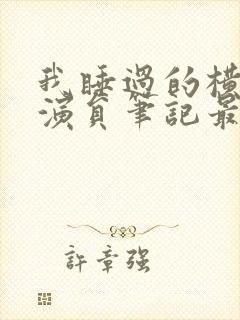 我睡過的橫
演員筆記最
許章強